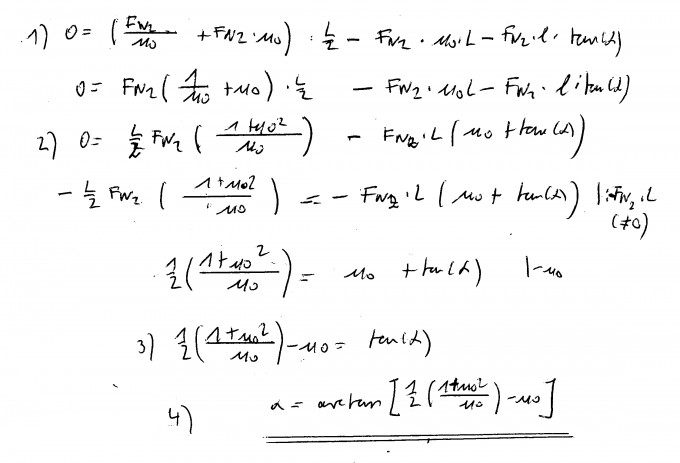 1) 0 = (F_N2/μ0 + F_N2 · μ0) · L/2 − F_N2 · μ0 · L − F_N2 · l · tan(α)
0 = F_N2 (1/μ0 + μ0) · L/2 − F_N2 · μ0 L − F_N2 · l · tan(α)
2) 0 = L/2 F_N2 (1+μ0²/μ0) − F_N2 · L (μ0 + tan(α))
− L/2 F_N2 (1+μ0²/μ0) = − F_N2 · L (μ0 + tan(α)) |: F_N2 · L
(≠0)
1/2 (1+μ0²/μ0) = μ0 + tan(α) |−μ0
3) 1/2 (1+μ0²/μ0) − μ0 = tan(α)
4) α = arctan [1/2 (1+μ0²/μ0) − μ0]